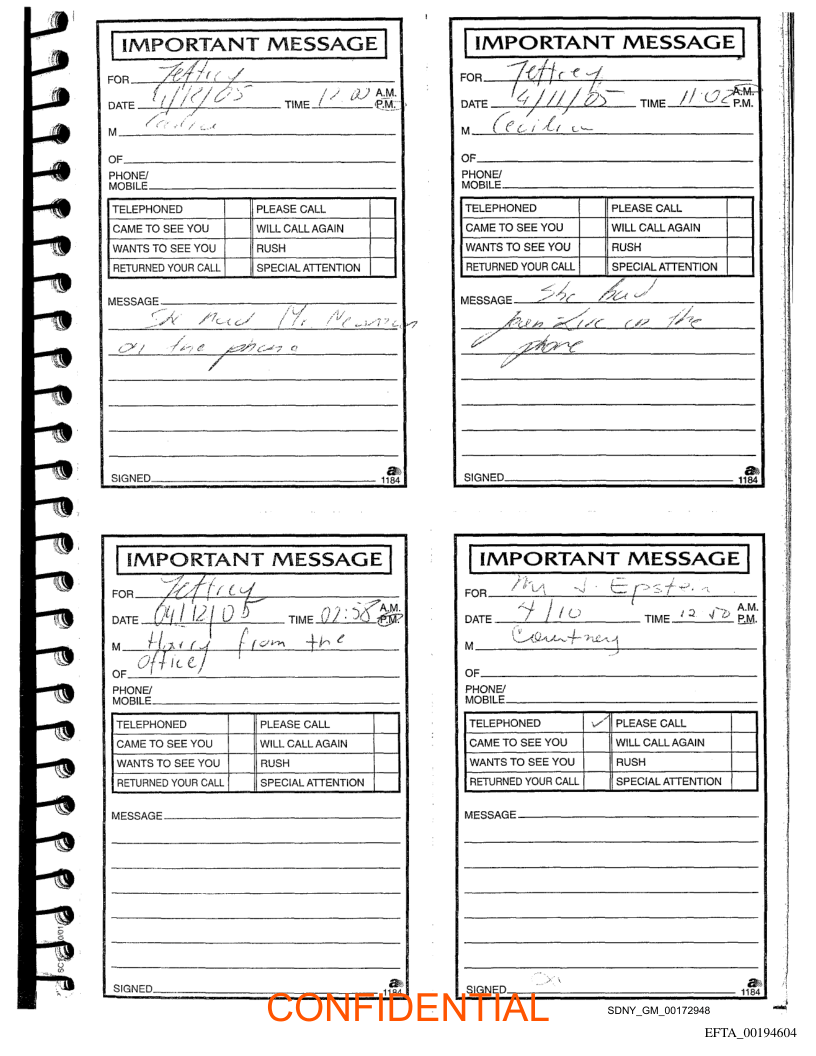 IMPORTANT MESSAGE
FOR Jeffrey
DATE 4/12/05 TIME 12:00 A.M. P.M.
M
OF
PHONE/
MOBILE
TELEPHONED PLEASE CALL
CAME TO SEE YOU WILL CALL AGAIN
WANTS TO SEE YOU RUSH
RETURNED YOUR CALL SPECIAL ATTENTION
MESSAGE
on the phone
SIGNED
1184
IMPORTANT MESSAGE
FOR Jeffrey
DATE 4/11/05 TIME 11:02 A.M. P.M.
M Cecilia
OF
PHONE/
MOBILE
TELEPHONED PLEASE CALL
CAME TO SEE YOU WILL CALL AGAIN
WANTS TO SEE YOU RUSH
RETURNED YOUR CALL SPECIAL ATTENTION
MESSAGE She had
Jean Luc on the
phone
SIGNED
1184
IMPORTANT MESSAGE
FOR Jeffrey
DATE 04/12/05 TIME 02:58 A.M. P.M.
M Harry from the
OF Office
PHONE/
MOBILE
TELEPHONED PLEASE CALL
CAME TO SEE YOU WILL CALL AGAIN
WANTS TO SEE YOU RUSH
RETURNED YOUR CALL SPECIAL ATTENTION
MESSAGE
SIGNED
1184
IMPORTANT MESSAGE
FOR Mr J. Epstein
DATE 4/10 TIME 12 50 A.M. P.M.
M Courtney
OF
PHONE/
MOBILE
TELEPHONED ✓ PLEASE CALL
CAME TO SEE YOU WILL CALL AGAIN
WANTS TO SEE YOU RUSH
RETURNED YOUR CALL SPECIAL ATTENTION
MESSAGE
SIGNED
1184
CONFIDENTIAL
SDNY_GM_00172948
EFTA_00194604